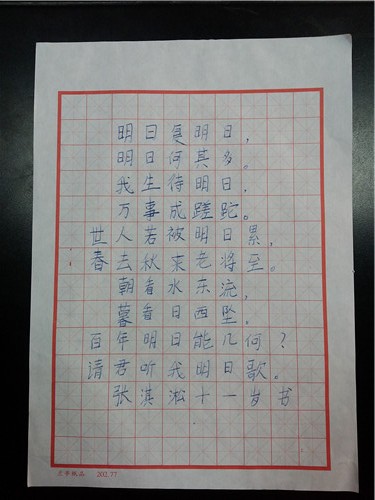 明日复明日，
明日何其多。
我生待明日，
万事成蹉跎。
世人若被明日累，
春去秋来老将至。
朝看水东流，
暮看日西坠。
百年明日能几何？
请君听我明日歌。
张淇淞十一岁书
202.77